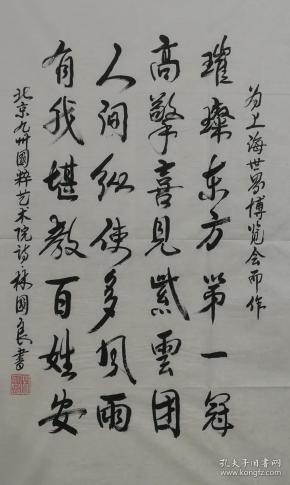 为上海世界博览会而作
璀璨东方第一冠
高擎喜见紫雲团
人间纵使多风雨
有我堪教百姓安
北京九州國粹艺术院詩·林國良書
孔夫子旧书网